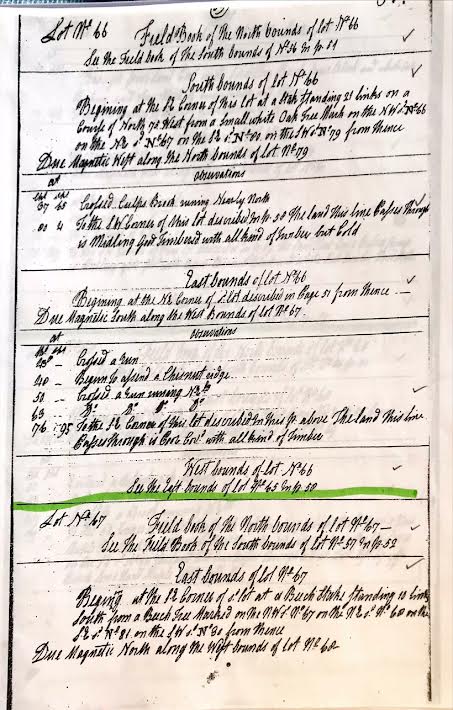 Lot No 66 Field Book of the North bounds of lot No 66
See the Field book of the South bounds of No 56 In p. 51
South bounds of lot No 66
Begining at the SE Corner of this lot at a Stake Standing 21 links on a
Course of North 70 West from a Small white Oak Tree Mark on the NW s. No 66
on the NE s. No 67 on the SE s. No 80 on the SW s. No 79 from thence
Due Magnetic West along the North bounds of lot No 79
at obserations
chs lks
37 65 Crossed Culps Brook runing Nearly North
80 4 To the SW Corner of this lot described In p. 50 The land this line Passes Through
is Midling Good timbered with all kand of timber but Cold
East bounds of lot No 66
Begining at the NE Corner of s. lot described in Page 51 from thence
Due Magnetic South along the West Bounds of lot No 67
at obserations
chs lks
– Crossed a run
40 – Began to assend a Chesnut ridge
50 – Crossed a run runing
63 Do Do Do
76 95 To the SE Corner of this lot described In this p. above The land this line
Passes through is with all kand of timber
West bounds of lot No 66
See the East bounds of lot No 65 In p. 50
Lot No 67 Field book of the North bounds of lot No 67
See the Field Book of the South bounds of lot No 57 In p. 52
East bounds of lot No 67
Begining at the SE Corner of s. lot at a Beech Stake Standing 12 links
South from a Beech Tree Marked on the NW s. No 67 on the NE s. No 68 on the
SE s. No 81 on the SW s. No 80 from thence
Due Magnetic North along the West bounds of lot No 68